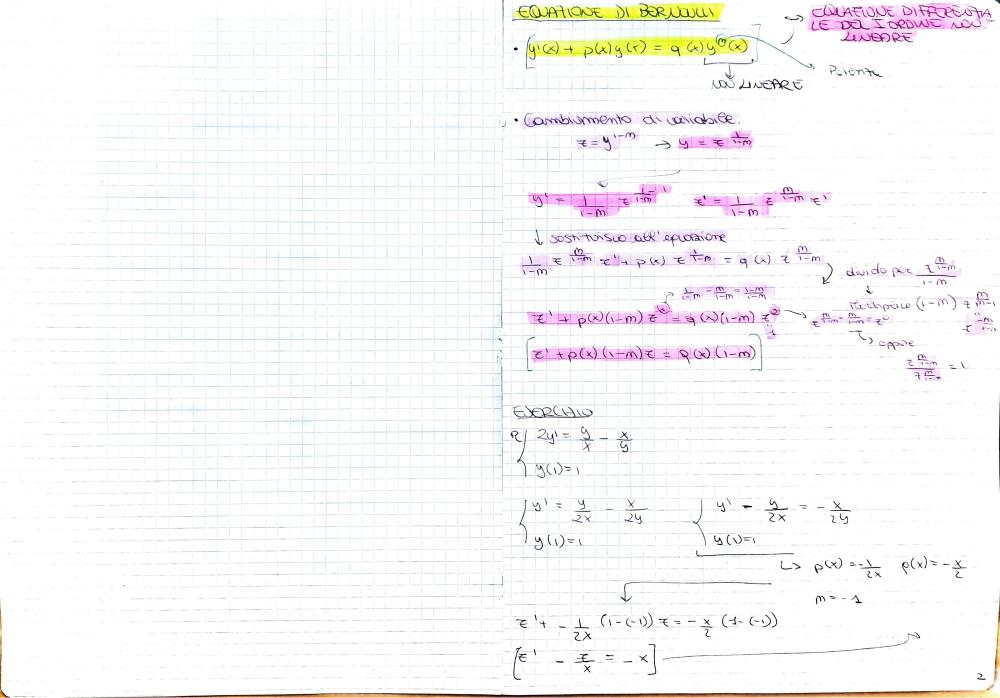 EQUAZIONE DI BERNOULLI
→ EQUAZIONE DIFFERENZIA
LE DEL I ORDINE NON
LINEARE
• [y'(x) + p(x)y(x) = q(x)y^m(x)]
Potenza
NON LINEARE
• Cambiamento di variabile.
z = y^{1-m} → y = z^{\frac{1}{1-m}}
y' = \frac{1}{1-m} z^{\frac{1}{1-m} - 1} z' = \frac{1}{1-m} z^{\frac{m}{1-m}} z'
↓ sostituisco all'equazione
\frac{1}{1-m} z^{\frac{m}{1-m}} z' + p(x) z^{\frac{1}{1-m}} = q(x) z^{\frac{m}{1-m}}
divido per \frac{z^{\frac{m}{1-m}}}{1-m}
↓
(1-m) z^{\frac{m}{m-1}}
\frac{1}{1-m} - \frac{m}{1-m} = \frac{1-m}{1-m}
z' + p(x)(1-m) z = q(x)(1-m) z^0
1
z^{\frac{m}{1-m} - \frac{m}{1-m}} = z^0
oppure
\frac{z^{\frac{m}{1-m}}}{z^{\frac{m}{1-m}}} = 1
[z' + p(x)(1-m)z = q(x)(1-m)]
ESERCIZIO
2y' = \frac{y}{x} - \frac{x}{y}
y(1) = 1
y' = \frac{y}{2x} - \frac{x}{2y} y' - \frac{y}{2x} = -\frac{x}{2y}
y(1) = 1 y(1) = 1
↳ p(x) = -\frac{1}{2x} q(x) = -\frac{x}{2}
m = -1
z' + -\frac{1}{2x} (1-(-1)) z = -\frac{x}{2} (1-(-1))
[z' - \frac{z}{x} = -x]
2